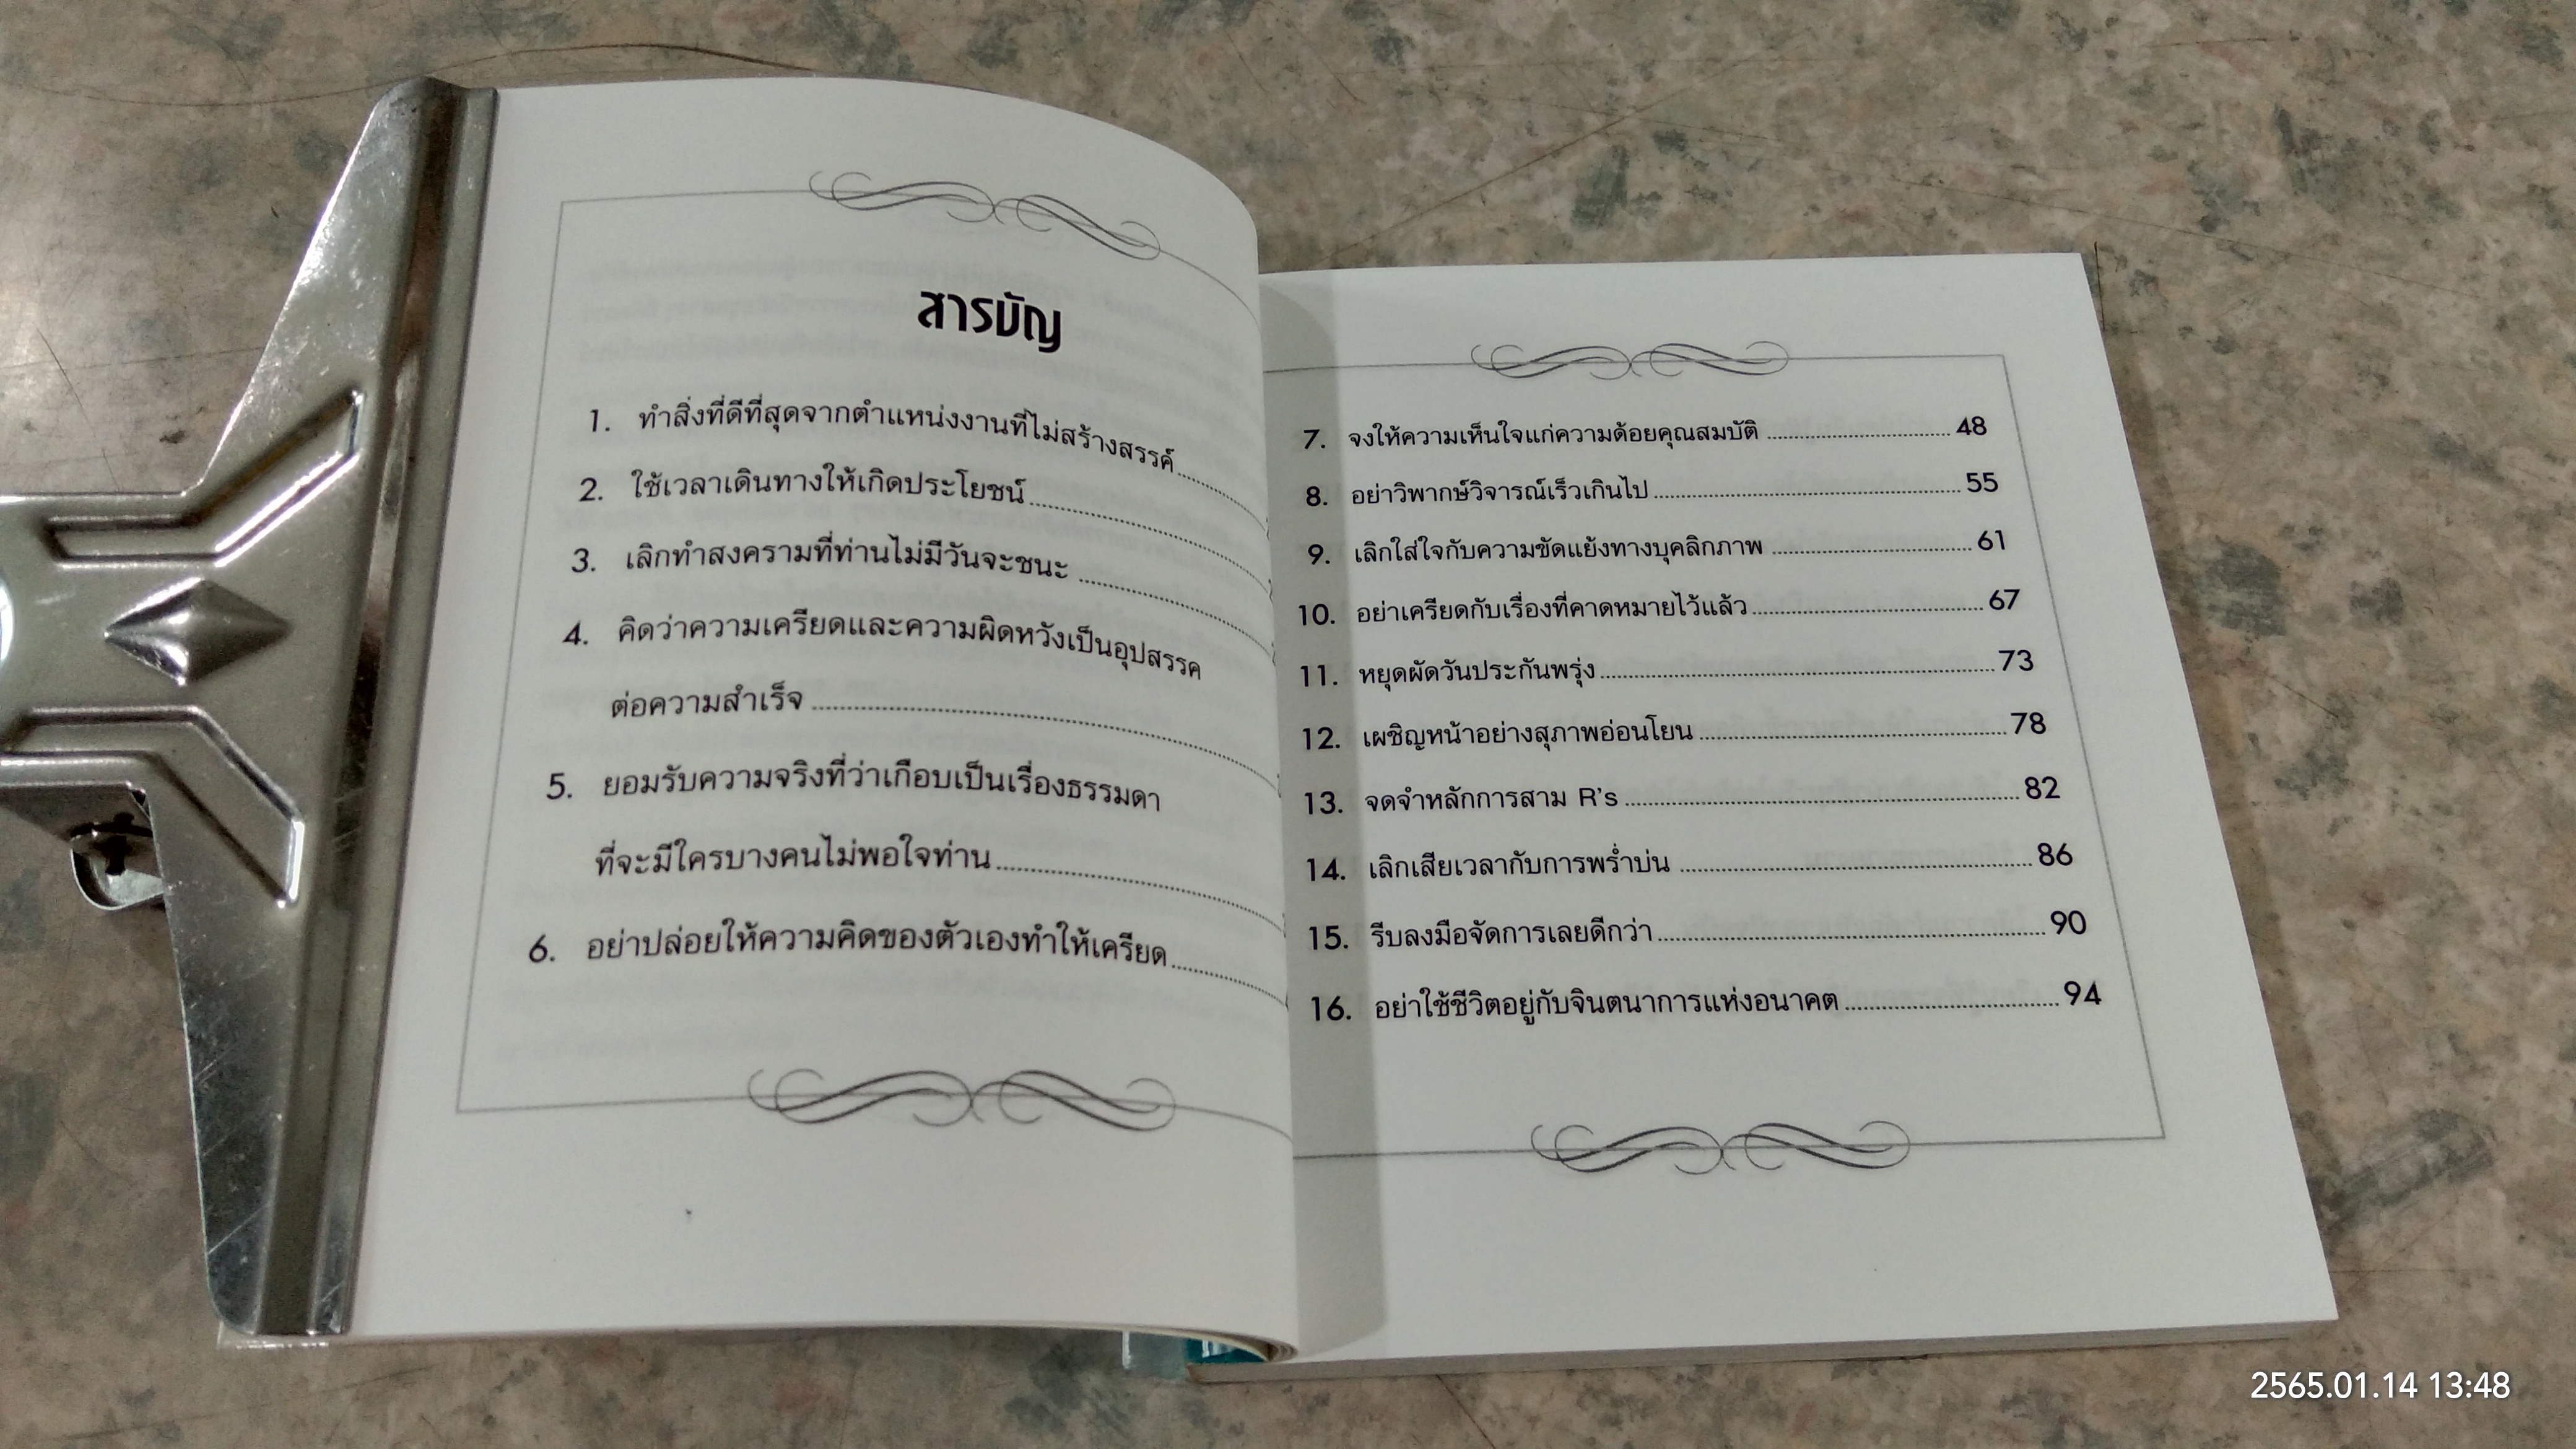 สารบัญ
1. ทำสิ่งที่ดีที่สุดจากตำแหน่งงานที่ไม่สร้างสรรค์
2. ใช้เวลาเดินทางให้เกิดประโยชน์
3. เลิกทำสงครามที่ท่านไม่มีวันจะชนะ
4. คิดว่าความเครียดและความผิดหวังเป็นอุปสรรค
ต่อความสำเร็จ
5. ยอมรับความจริงที่ว่าเกือบเป็นเรื่องธรรมดา
ที่จะมีใครบางคนไม่พอใจท่าน
6. อย่าปล่อยให้ความคิดของตัวเองทำให้เครียด
7. จงให้ความเห็นใจแก่ความด้อยคุณสมบัติ 48
8. อย่าวิพากษ์วิจารณ์เร็วเกินไป 55
9. เลิกใส่ใจกับความขัดแย้งทางบุคลิกภาพ 61
10. อย่าเครียดกับเรื่องที่คาดหมายไว้แล้ว 67
11. หยุดผัดวันประกันพรุ่ง 73
12. เผชิญหน้าอย่างสุภาพอ่อนโยน 78
13. จดจำหลักการสาม R's 82
14. เลิกเสียเวลากับการพร่ำบ่น 86
15. รีบลงมือจัดการเลยดีกว่า 90
16. อย่าใช้ชีวิตอยู่กับจินตนาการแห่งอนาคต 94
2565.01.14 13:48